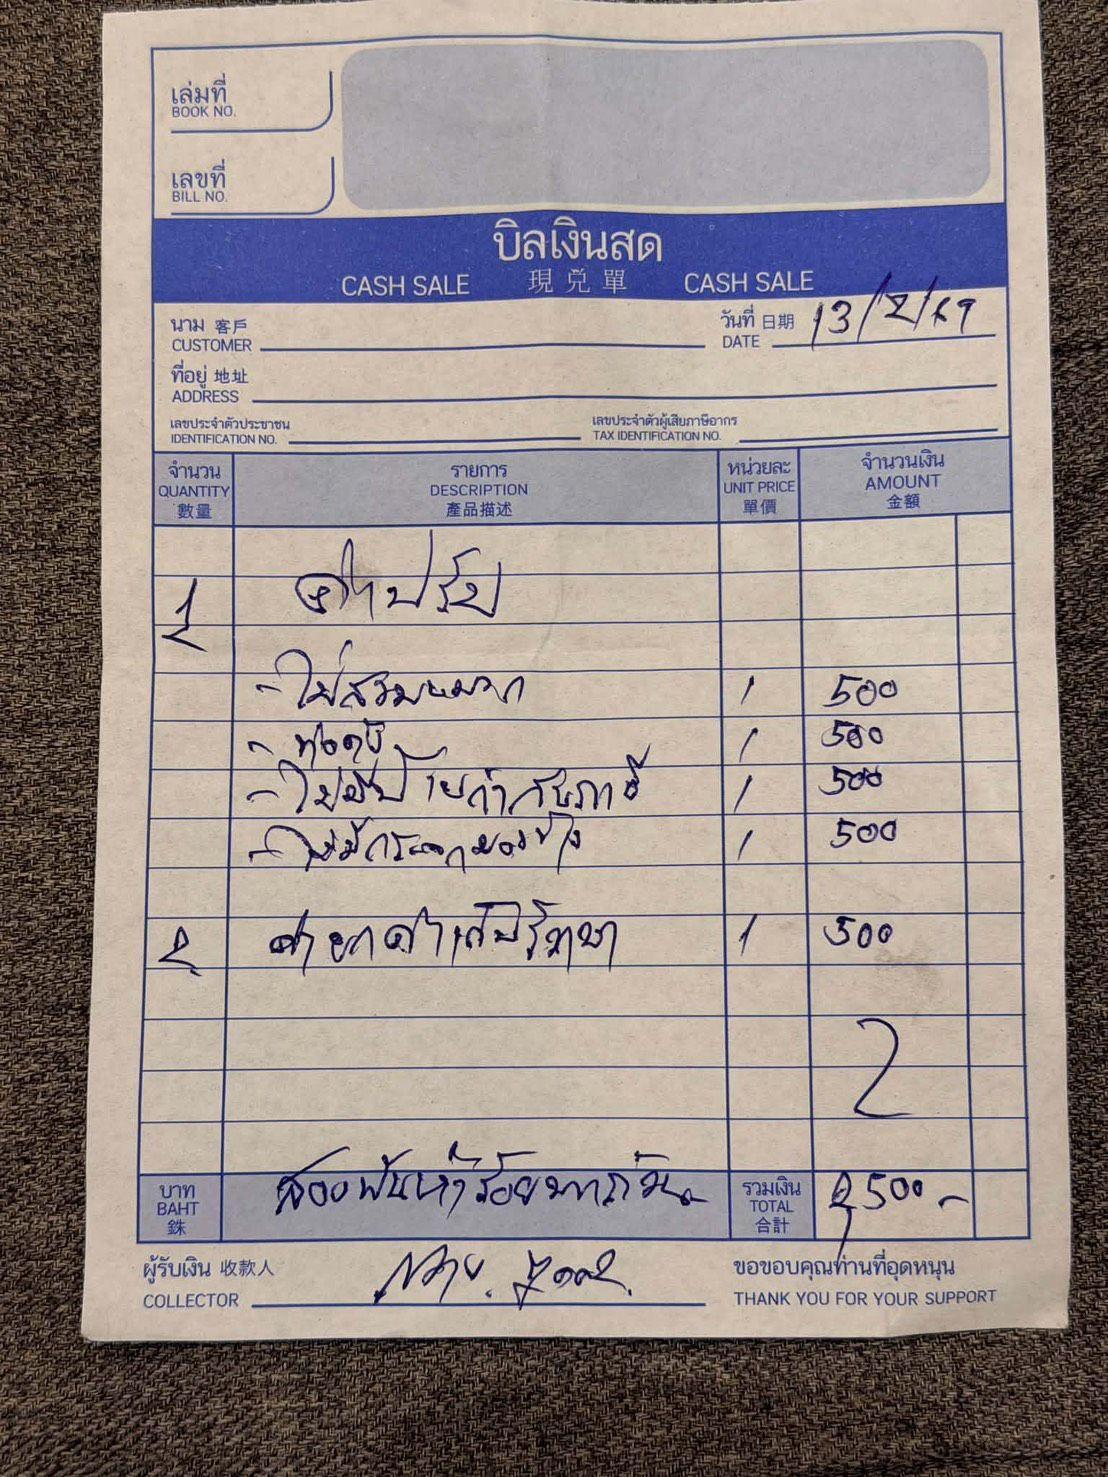 เล่มที่
BOOK NO.
เลขที่
BILL NO.
บิลเงินสด
CASH SALE 現兌單 CASH SALE
นาม 客戶
CUSTOMER
วันที่ 日期 13/2/69
DATE
ที่อยู่ 地址
ADDRESS
เลขประจำตัวประชาชน
IDENTIFICATION NO.
เลขประจำตัวผู้เสียภาษีอากร
TAX IDENTIFICATION NO.
จำนวน รายการ หน่วยละ จำนวนเงิน
QUANTITY DESCRIPTION UNIT PRICE AMOUNT
數量 產品描述 單價 金額
1 ค่าปรับ
- ไม่สวมหมวก 1 500
- ท่อดัง 1 500
- ไม่มีป้ายภาษี 1 500
- ไม่มีกระจกมองข้าง 1 500
2 1 500
2
บาท สองพันห้าร้อยบาทถ้วน รวมเงิน 2500 -
BAHT TOTAL
銖 合計
ผู้รับเงิน 收款人
COLLECTOR
ขอขอบคุณท่านที่อุดหนุน
THANK YOU FOR YOUR SUPPORT